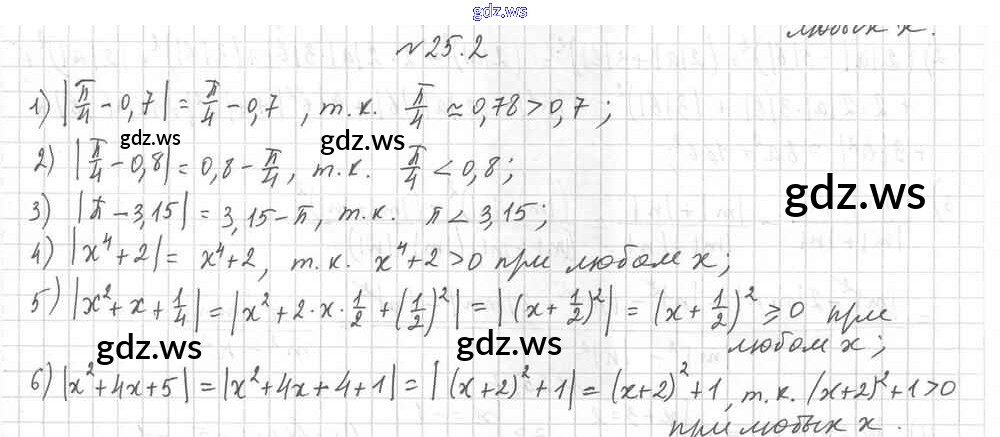 gdz.ws
любых x.
№25.2
1) |π/4 - 0,7| = π/4 - 0,7, т.к. π/4 ≃ 0,78 > 0,7;
gdz.ws gdz.ws
2) |π/4 - 0,8| = 0,8 - π/4, т.к. π/4 < 0,8;
gdz.ws
3) |π - 3,15| = 3,15 - π, т.к. π < 3,15;
4) |x⁴ + 2| = x⁴ + 2, т.к. x⁴ + 2 > 0 при любом x;
5) |x² + x + 1/4| = |x² + 2·x·1/2 + (1/2)²| = |(x + 1/2)²| = (x + 1/2)² ≥ 0 при
любом x;
gdz.ws gdz.ws
6) |x² + 4x + 5| = |x² + 4x + 4 + 1| = |(x+2)² + 1| = (x+2)² + 1, т.к. (x+2)² + 1 > 0
при любых x.